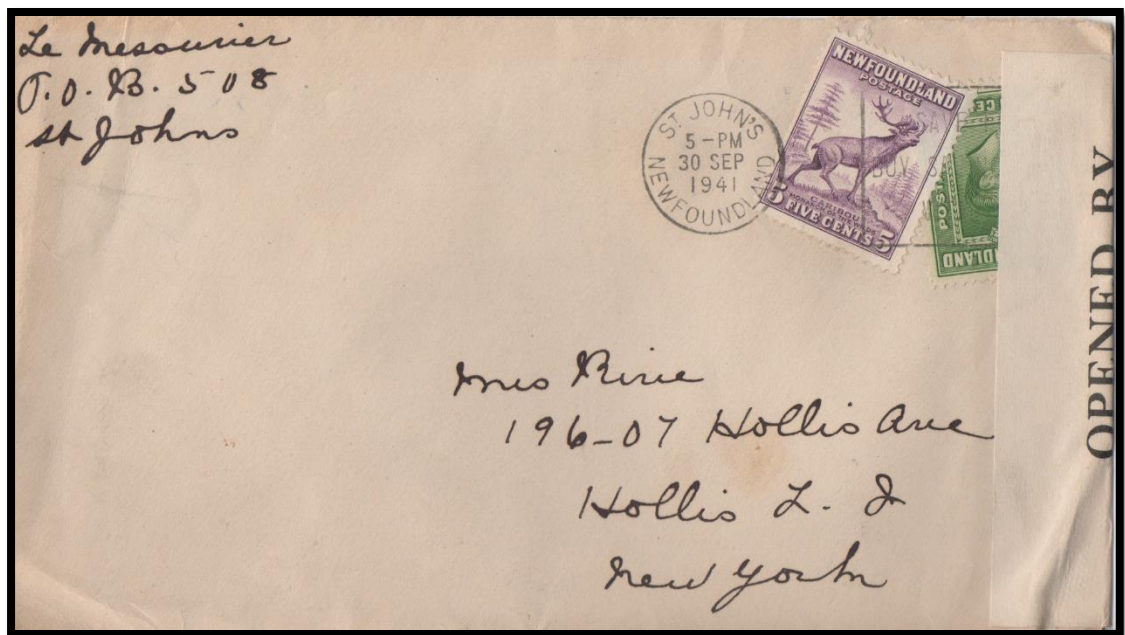 Le Messurier
P.O.B. 508
St Johns
ST. JOHN'S
5-PM
30 SEP
1941
NEWFOUNDLAND
NEWFOUNDLAND
POSTAGE
CARIBOU
5 FIVE CENTS 5
BUY
POST
DLAND
OPENED BY
MrsRirie
196-07 Hollis Ave
Hollis L. I
New York